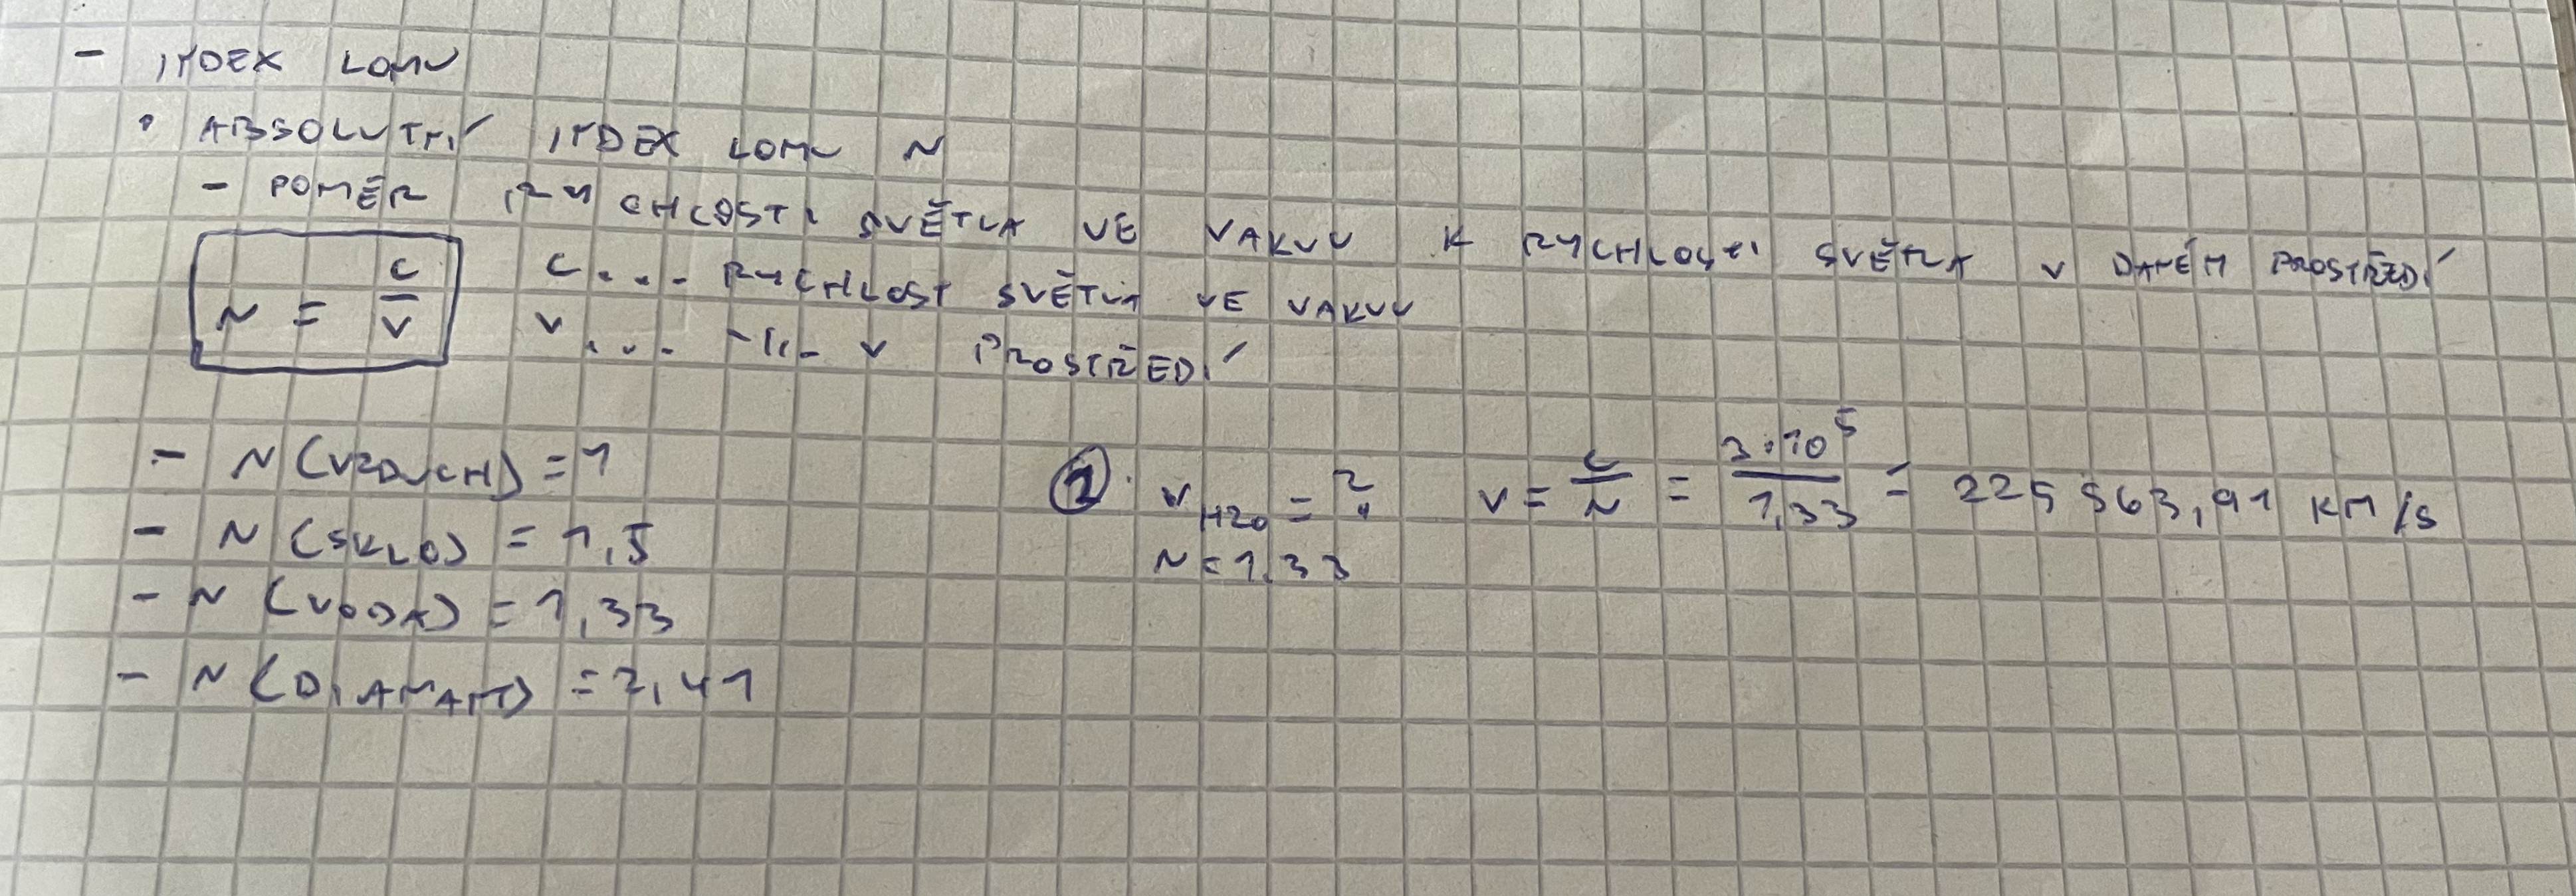 - INDEX LOMU
• ABSOLUTNÍ INDEX LOMU N
- POMĚR RYCHLOSTI SVĚTLA VE VAKUU K RYCHLOSTI SVĚTLA V DANÉM PROSTŘEDÍ
N = C/V
C.... RYCHLOST SVĚTLA VE VAKUU
V.... -II- V PROSTŘEDÍ
- N (VZDUCH) = 1
- N (SKLO) = 1,5
- N (VODA) = 1,33
- N (DIAMANT) = 2,41
① V_H2O = ? V = C/N = 3·10^5/1,33 ≐ 225 563,91 KM/S
N = 1,33